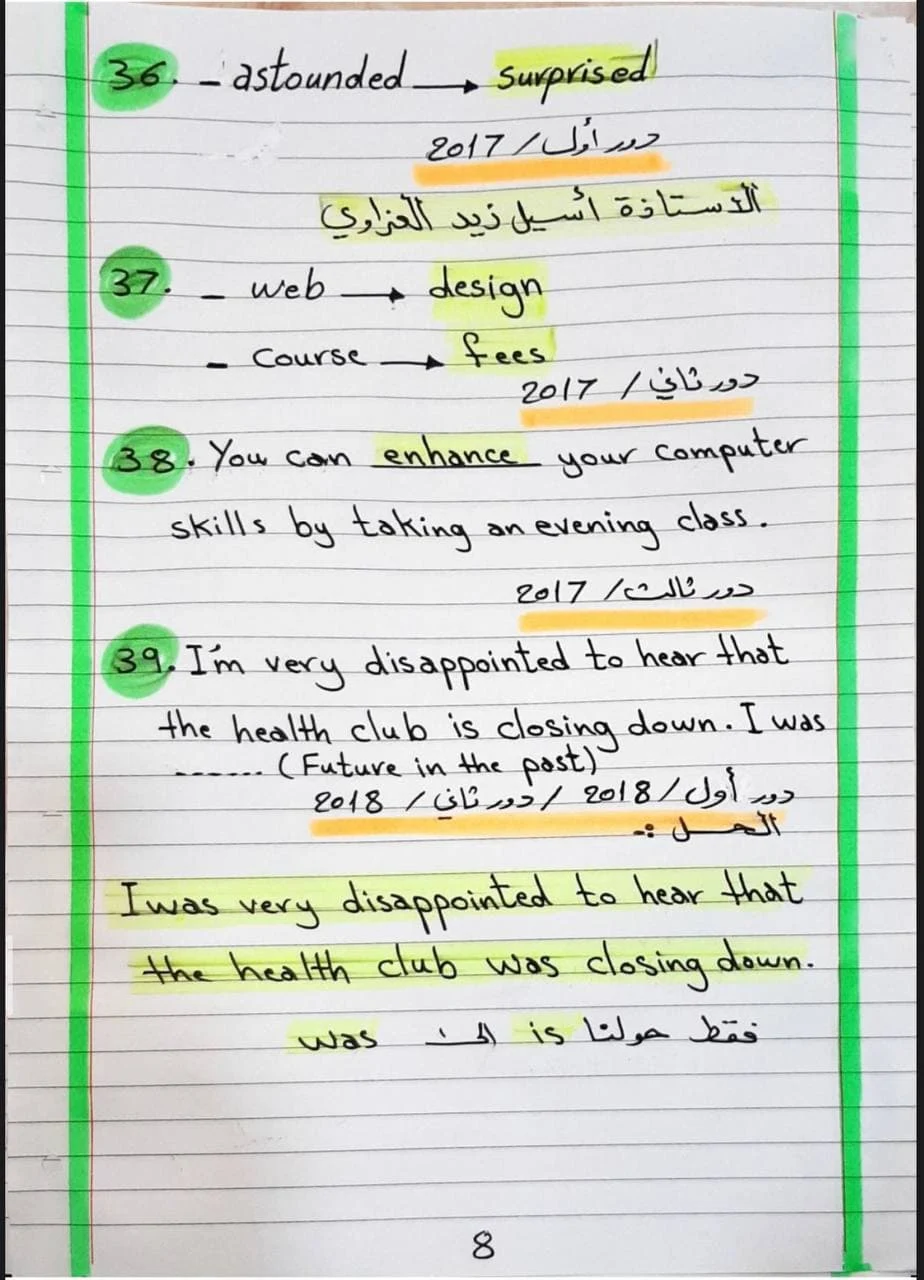 36. - astounded → surprised
دور أول / 2017
الاستاذة أسيل زيد العزاوي
37. - web → design
- course → fees
دور ثاني / 2017
38. You can enhance your computer
skills by taking an evening class.
دور ثالث / 2017
39. I'm very disappointed to hear that
the health club is closing down. I was
....... (Future in the past)
دور أول / 2018 / دور ثاني / 2018
الحل :-
I was very disappointed to hear that
the health club was closing down.
فقط حولنا is الى was
8